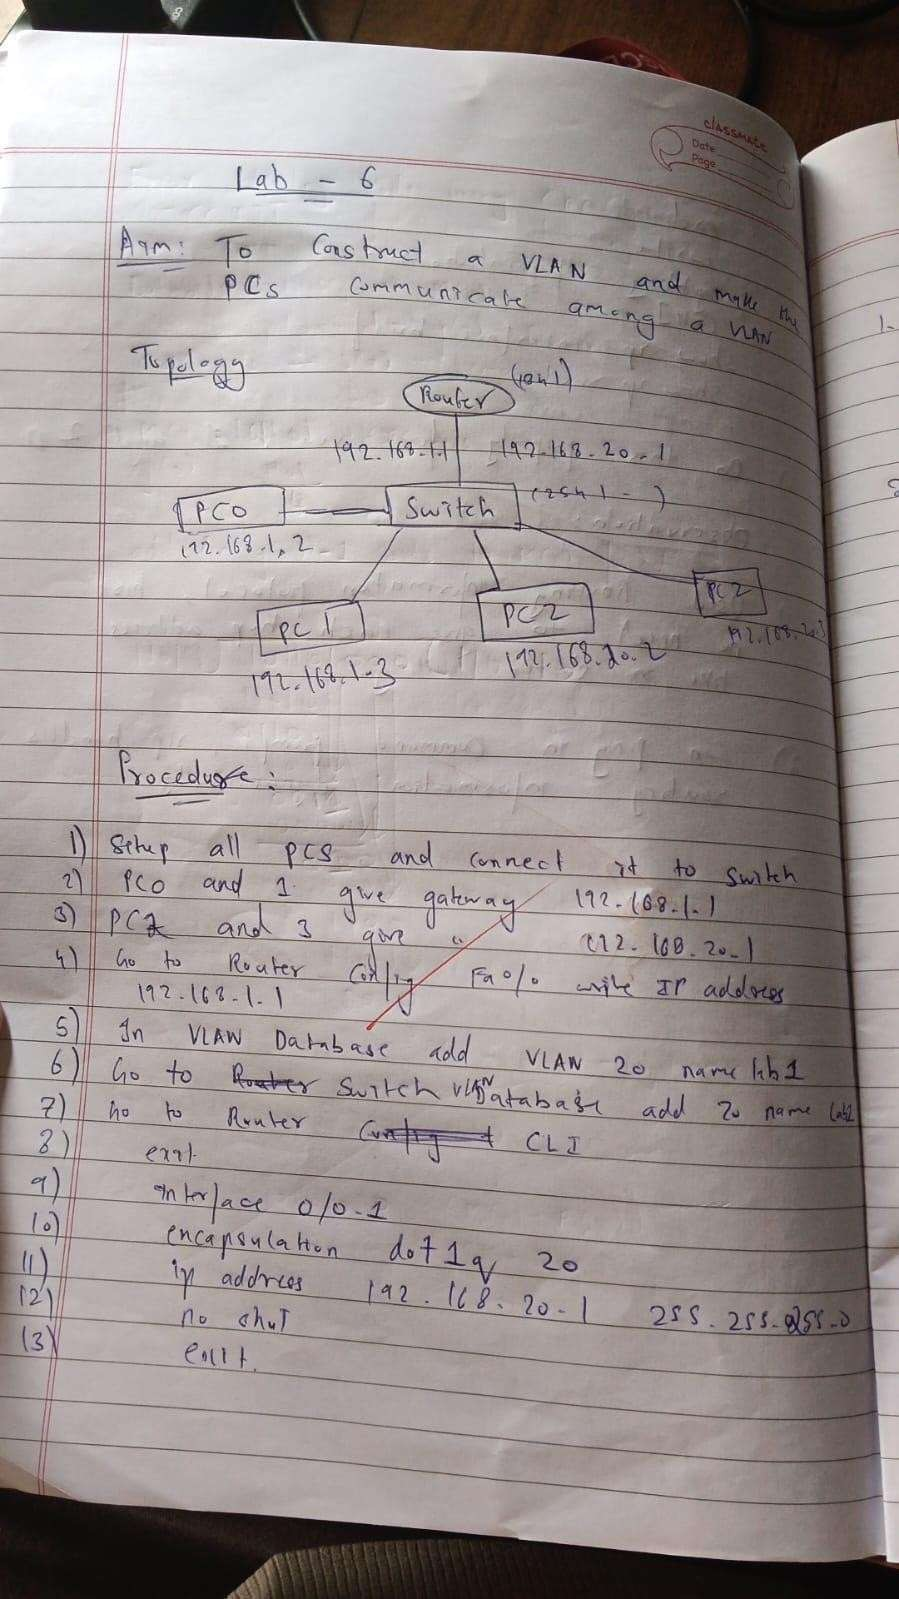 classmate
Date
Page
Lab - 6
Aim: To Construct a VLAN and make the
PCs communicate among a VLAN
Topology
Router
192.168.1.1 192.168.20.1
PC0 Switch
192.168.1.2
PC1 PC2 PC2
192.168.1.3 192.168.20.2
Procedure:
1) Setup all PCS and connect it to switch
2) PC0 and 1 give gateway 192.168.1.1
3) PC2 and 3 give " 192.168.20.1
4) Go to Router Config Fa0/0 write IP address
192.168.1.1
5) In VLAN Database add VLAN 20 name lab1
6) Go to Router Switch VLAN Database add 20 name lab1
7) Go to Router Config CLI
8) exit
9) interface 0/0.1
10) encapsulation dot1q 20
11) ip address 192.168.20.1 255.255.255.0
12) no shut
13) exit.